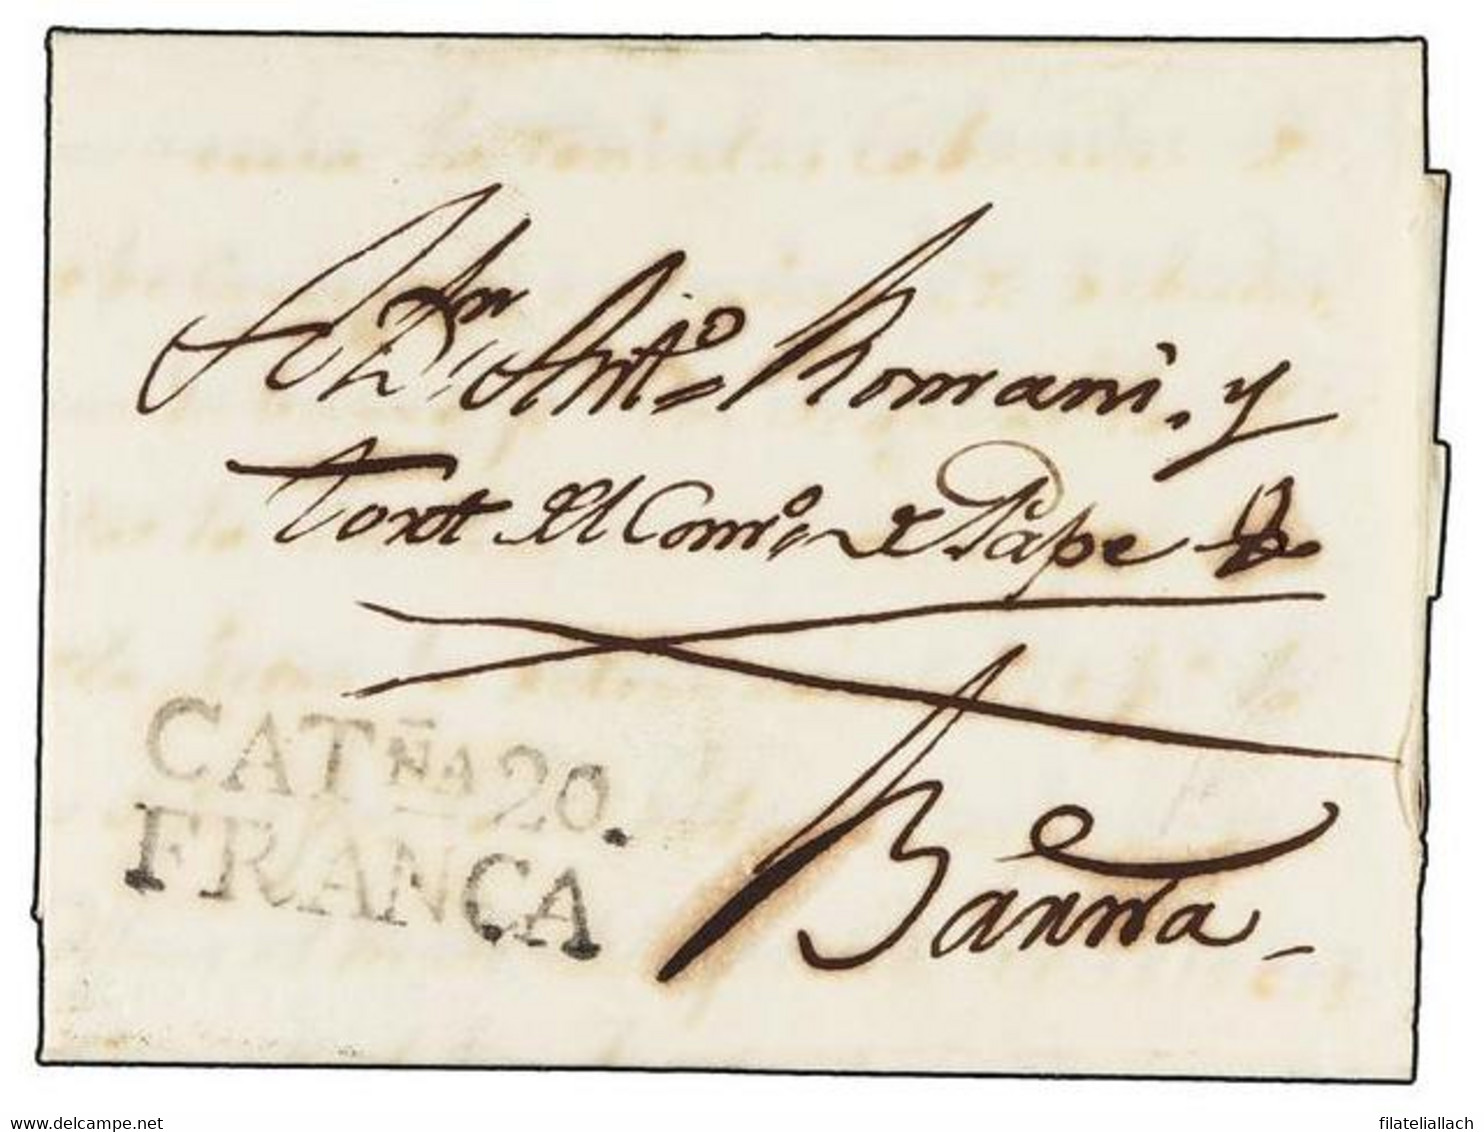 Sr. Dn. Anto. Romani, y
Torot del Como. de Pape
Barna.
CATÑA 20.
FRANCA
delcampe.net
filateliallach